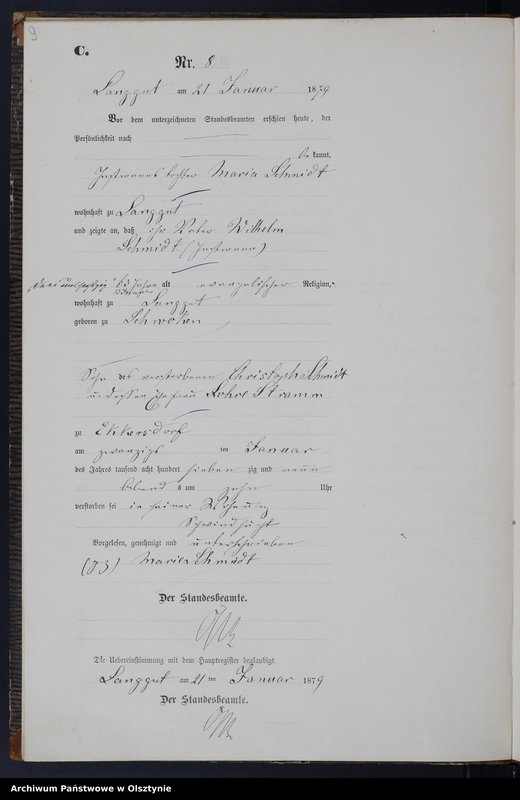 9
C.
Nr. 8
Langgut am 21 Januar 1879
Vor dem unterzeichneten Standesbeamten erschien heute, der
Persönlichkeit nach
be kannt,
Maria Schmidt
wohnhaft zu Langgut
und zeigte an, daß ihr Vater Wilhelm
Schmidt
63 Jahre alt evangelischer Religion,
wohnhaft zu Langgut
geboren zu
Sohn des verstorbenen Christoph Schmidt
u. dessen Ehefrau Lohre Stramm
zu Ekkersdorf
am zwanzigs ten Januar
des Jahres tausend acht hundert sieben zig und neun
Abend s um zehn Uhr
verstorben sei in seiner Wohnung
Schwindsucht
Vorgelesen, genehmigt und unterschrieben
Maria Schmidt
Der Standesbeamte.
Die Uebereinstimmung mit dem Hauptregister beglaubigt.
Langgut am 21 ten Januar 1879
Der Standesbeamte.
Archiwum Państwowe w Olsztynie